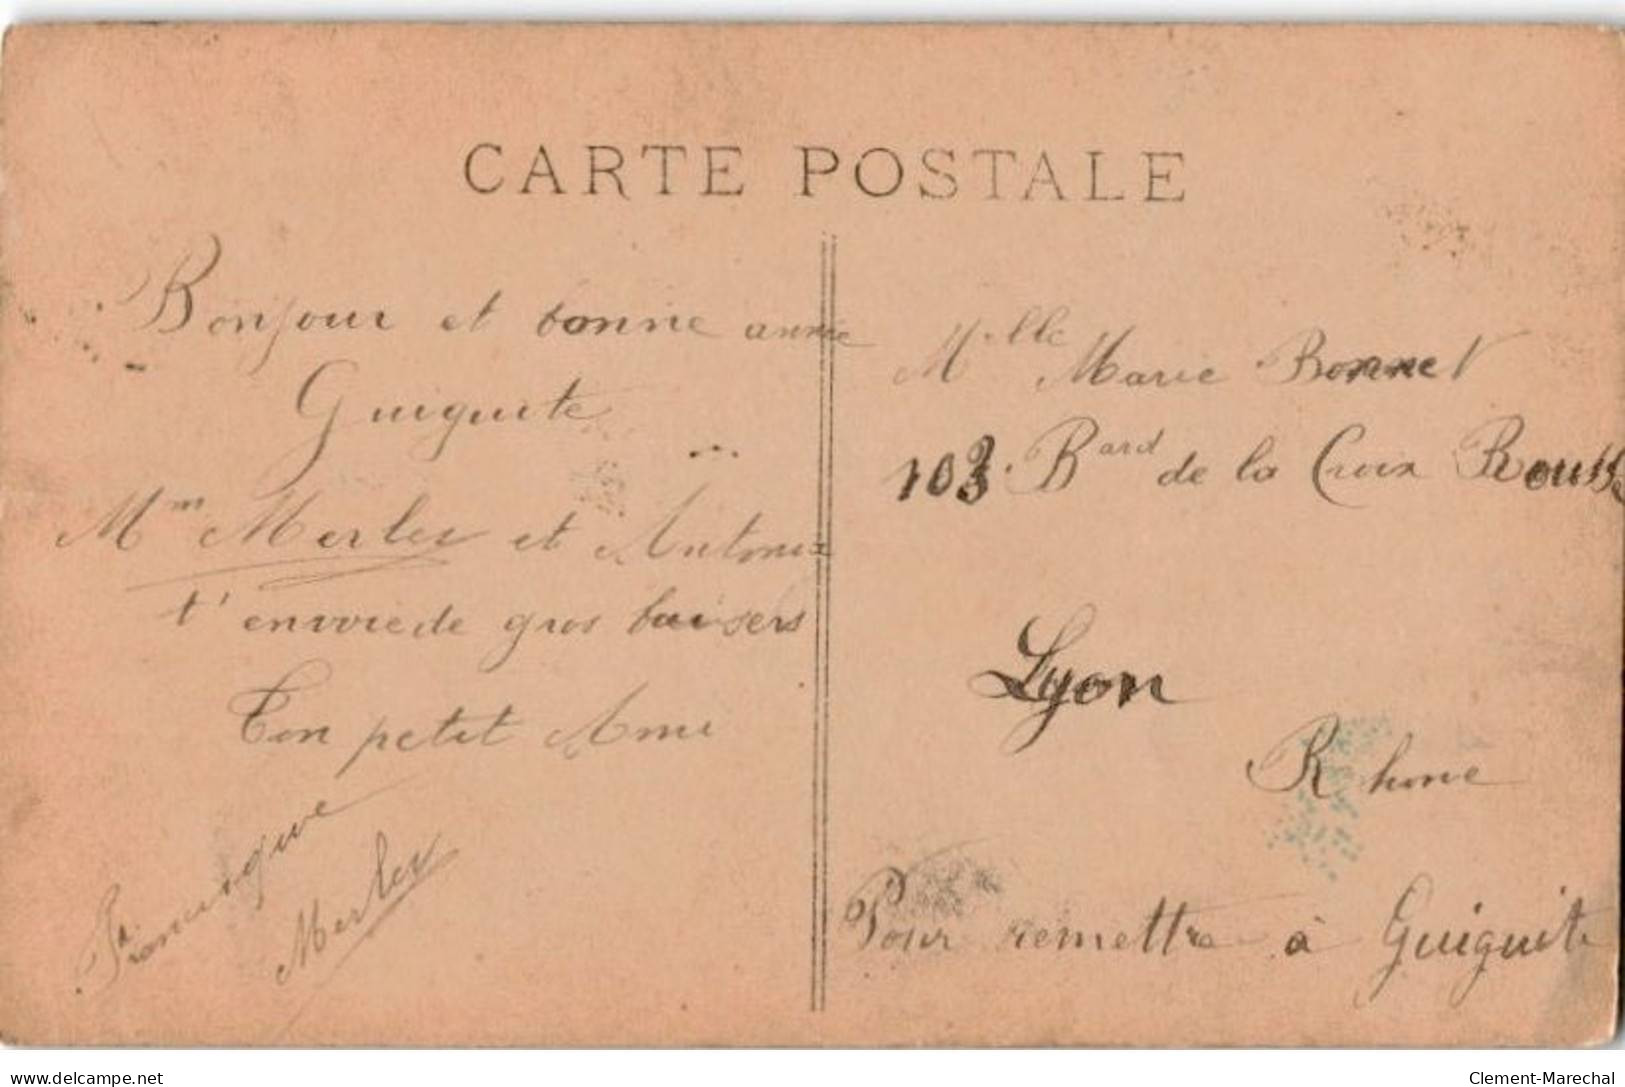 CARTE POSTALE
Bonjour et bonne année
Guiguite
Mme Merley et Antonia
t'envoie de gros baisers
Ton petit Ami
Francisque
Merley
Melle Marie Bonnet
103 Bard de la Croix Rousse
Lyon
Rhone
Pour remettre à Guiguite
delcampe.net
Clement-Marechal